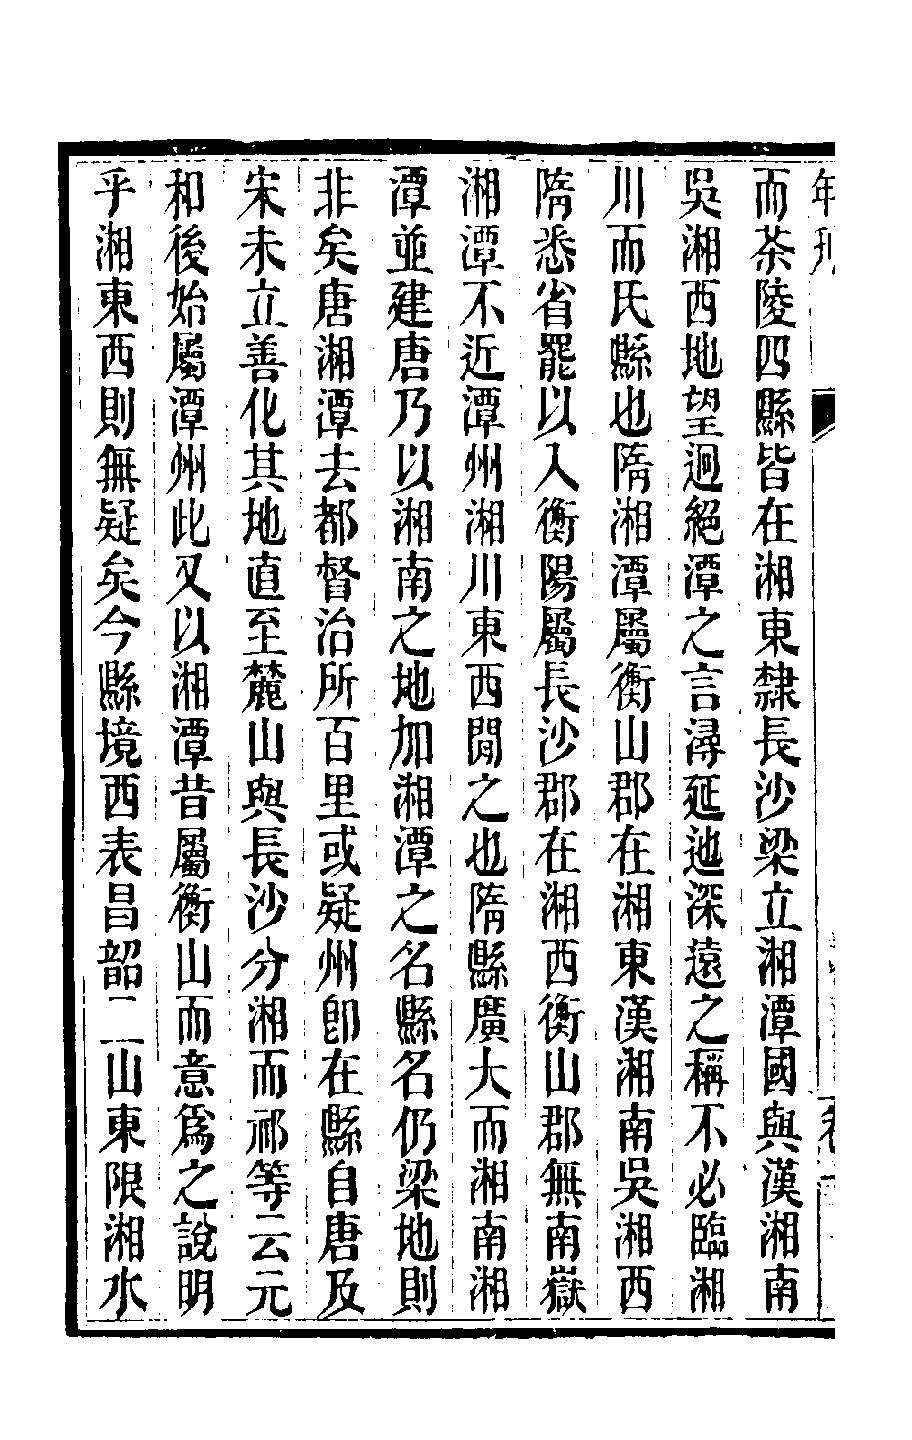 而茶陵四縣皆在湘東隸長沙梁立湘潭國與漢湘南
吳湘西地望迥絕潭之言潯延迆深遠之稱不必臨湘
川而氏縣也隋湘潭屬衡山郡在湘東漢湘南吳湘西
隋悉省罷以入衡陽屬長沙郡在湘西衡山郡無南嶽
湘潭不近潭州湘川東西閒之也隋縣廣大而湘南湘
潭並建唐乃以湘南之地加湘潭之名縣名仍梁地則
非矣唐湘潭去都督治所百里或疑州卽在縣自唐及
宋未立善化其地直至麓山與長沙分湘而祁等云元
和後始屬潭州此又以湘潭昔屬衡山而意爲之說明
乎湘東西則無疑矣今縣境西表昌韶二山東限湘水